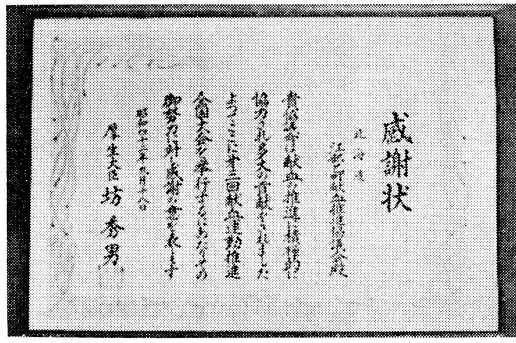 感謝状
北海道
江別市献血推進協議会殿
貴協議会は献血の推進に積極的に
協力され多大の貢献をされました
よつてここに第三回献血運動推進
全国大会を挙行するにあたりその
御努力に対し感謝の意を表します
昭和四十二年九月十八日
厚生大臣 坊秀男